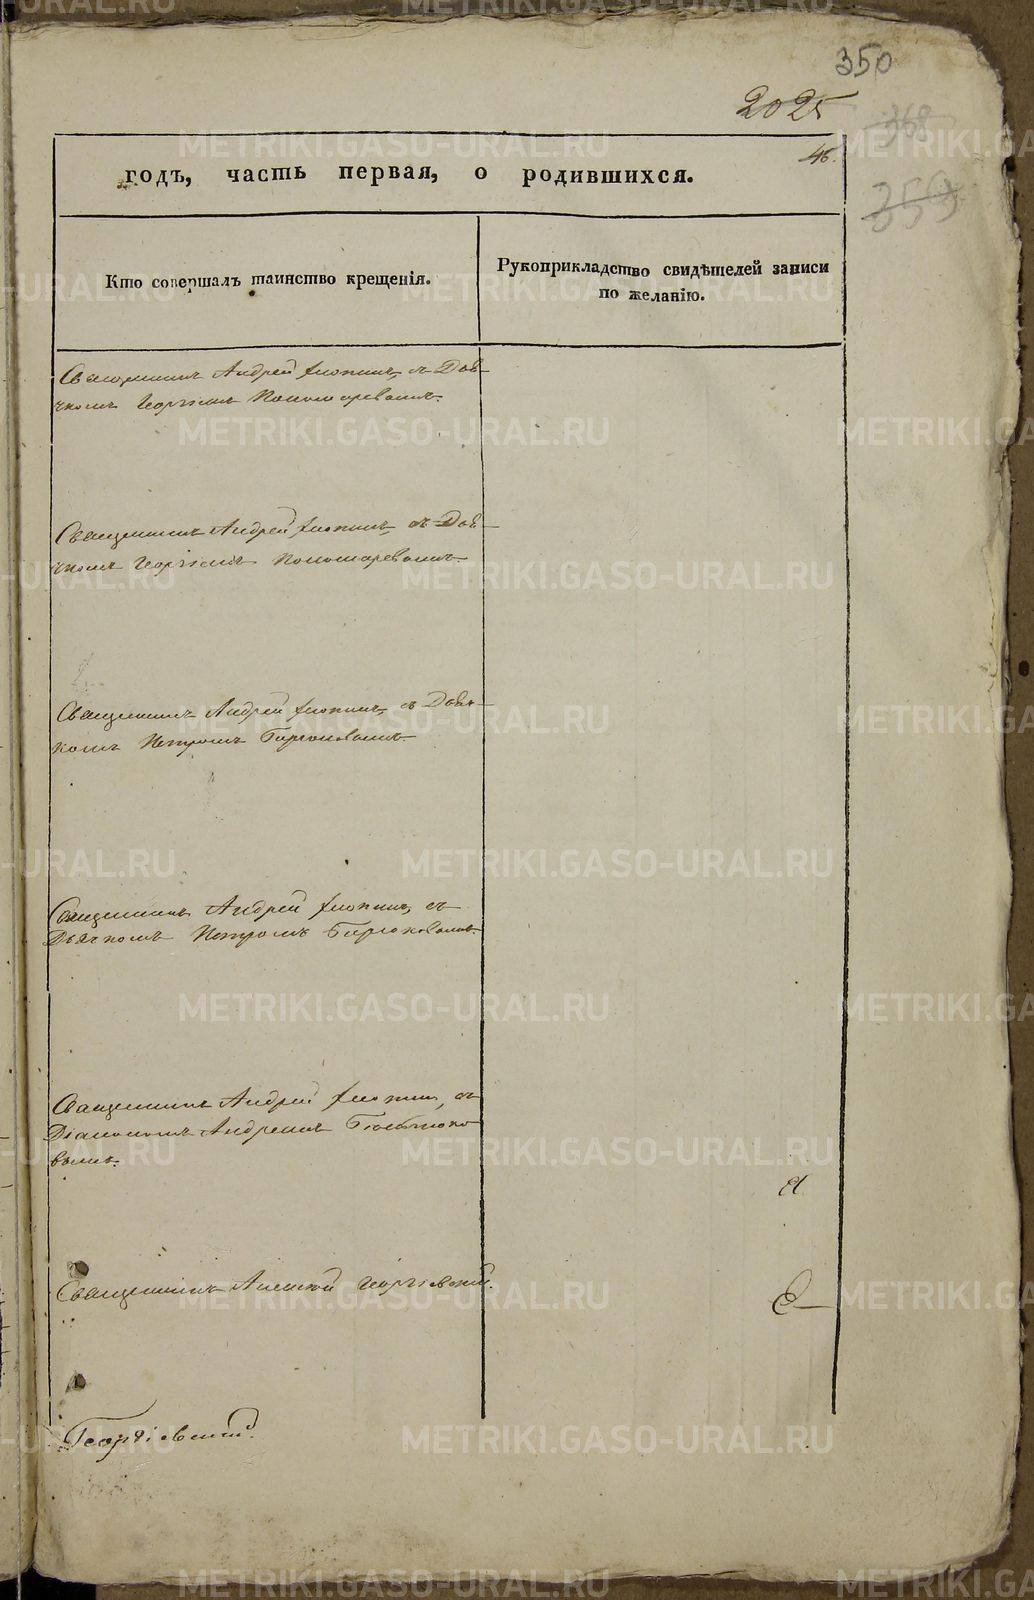 350
2025
368
46.
359
годъ, часть первая, о родившихся.
Кто совершалъ таинство крещенія.
Рукоприкладство свидѣтелей записи
по желанію.
Священникъ Андрей съ Дья-
чкомъ Георгіемъ Пономаревымъ.
Священникъ Андрей съ Дья-
чкомъ Георгіемъ Пономаревымъ.
Священникъ Андрей съ Дьяч-
комъ Петромъ Бирюковымъ.
Священникъ Андрей съ
Дьячкомъ Петромъ Бирюковымъ.
Священникъ Андрей съ
Діакономъ Андреемъ
вымъ.
Священникъ Алексій Георгіевскій.
Георгіевскій.
METRIKI.GASO-URAL.RU